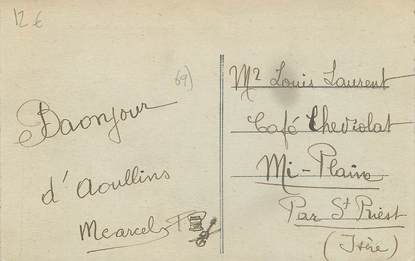 12 €
69)
Baonjour
d'aoullins
Mcarcel
Mr Louis Laurent
Café Chevrolat
Mi-Plaine
Par St Priest
(Isère)